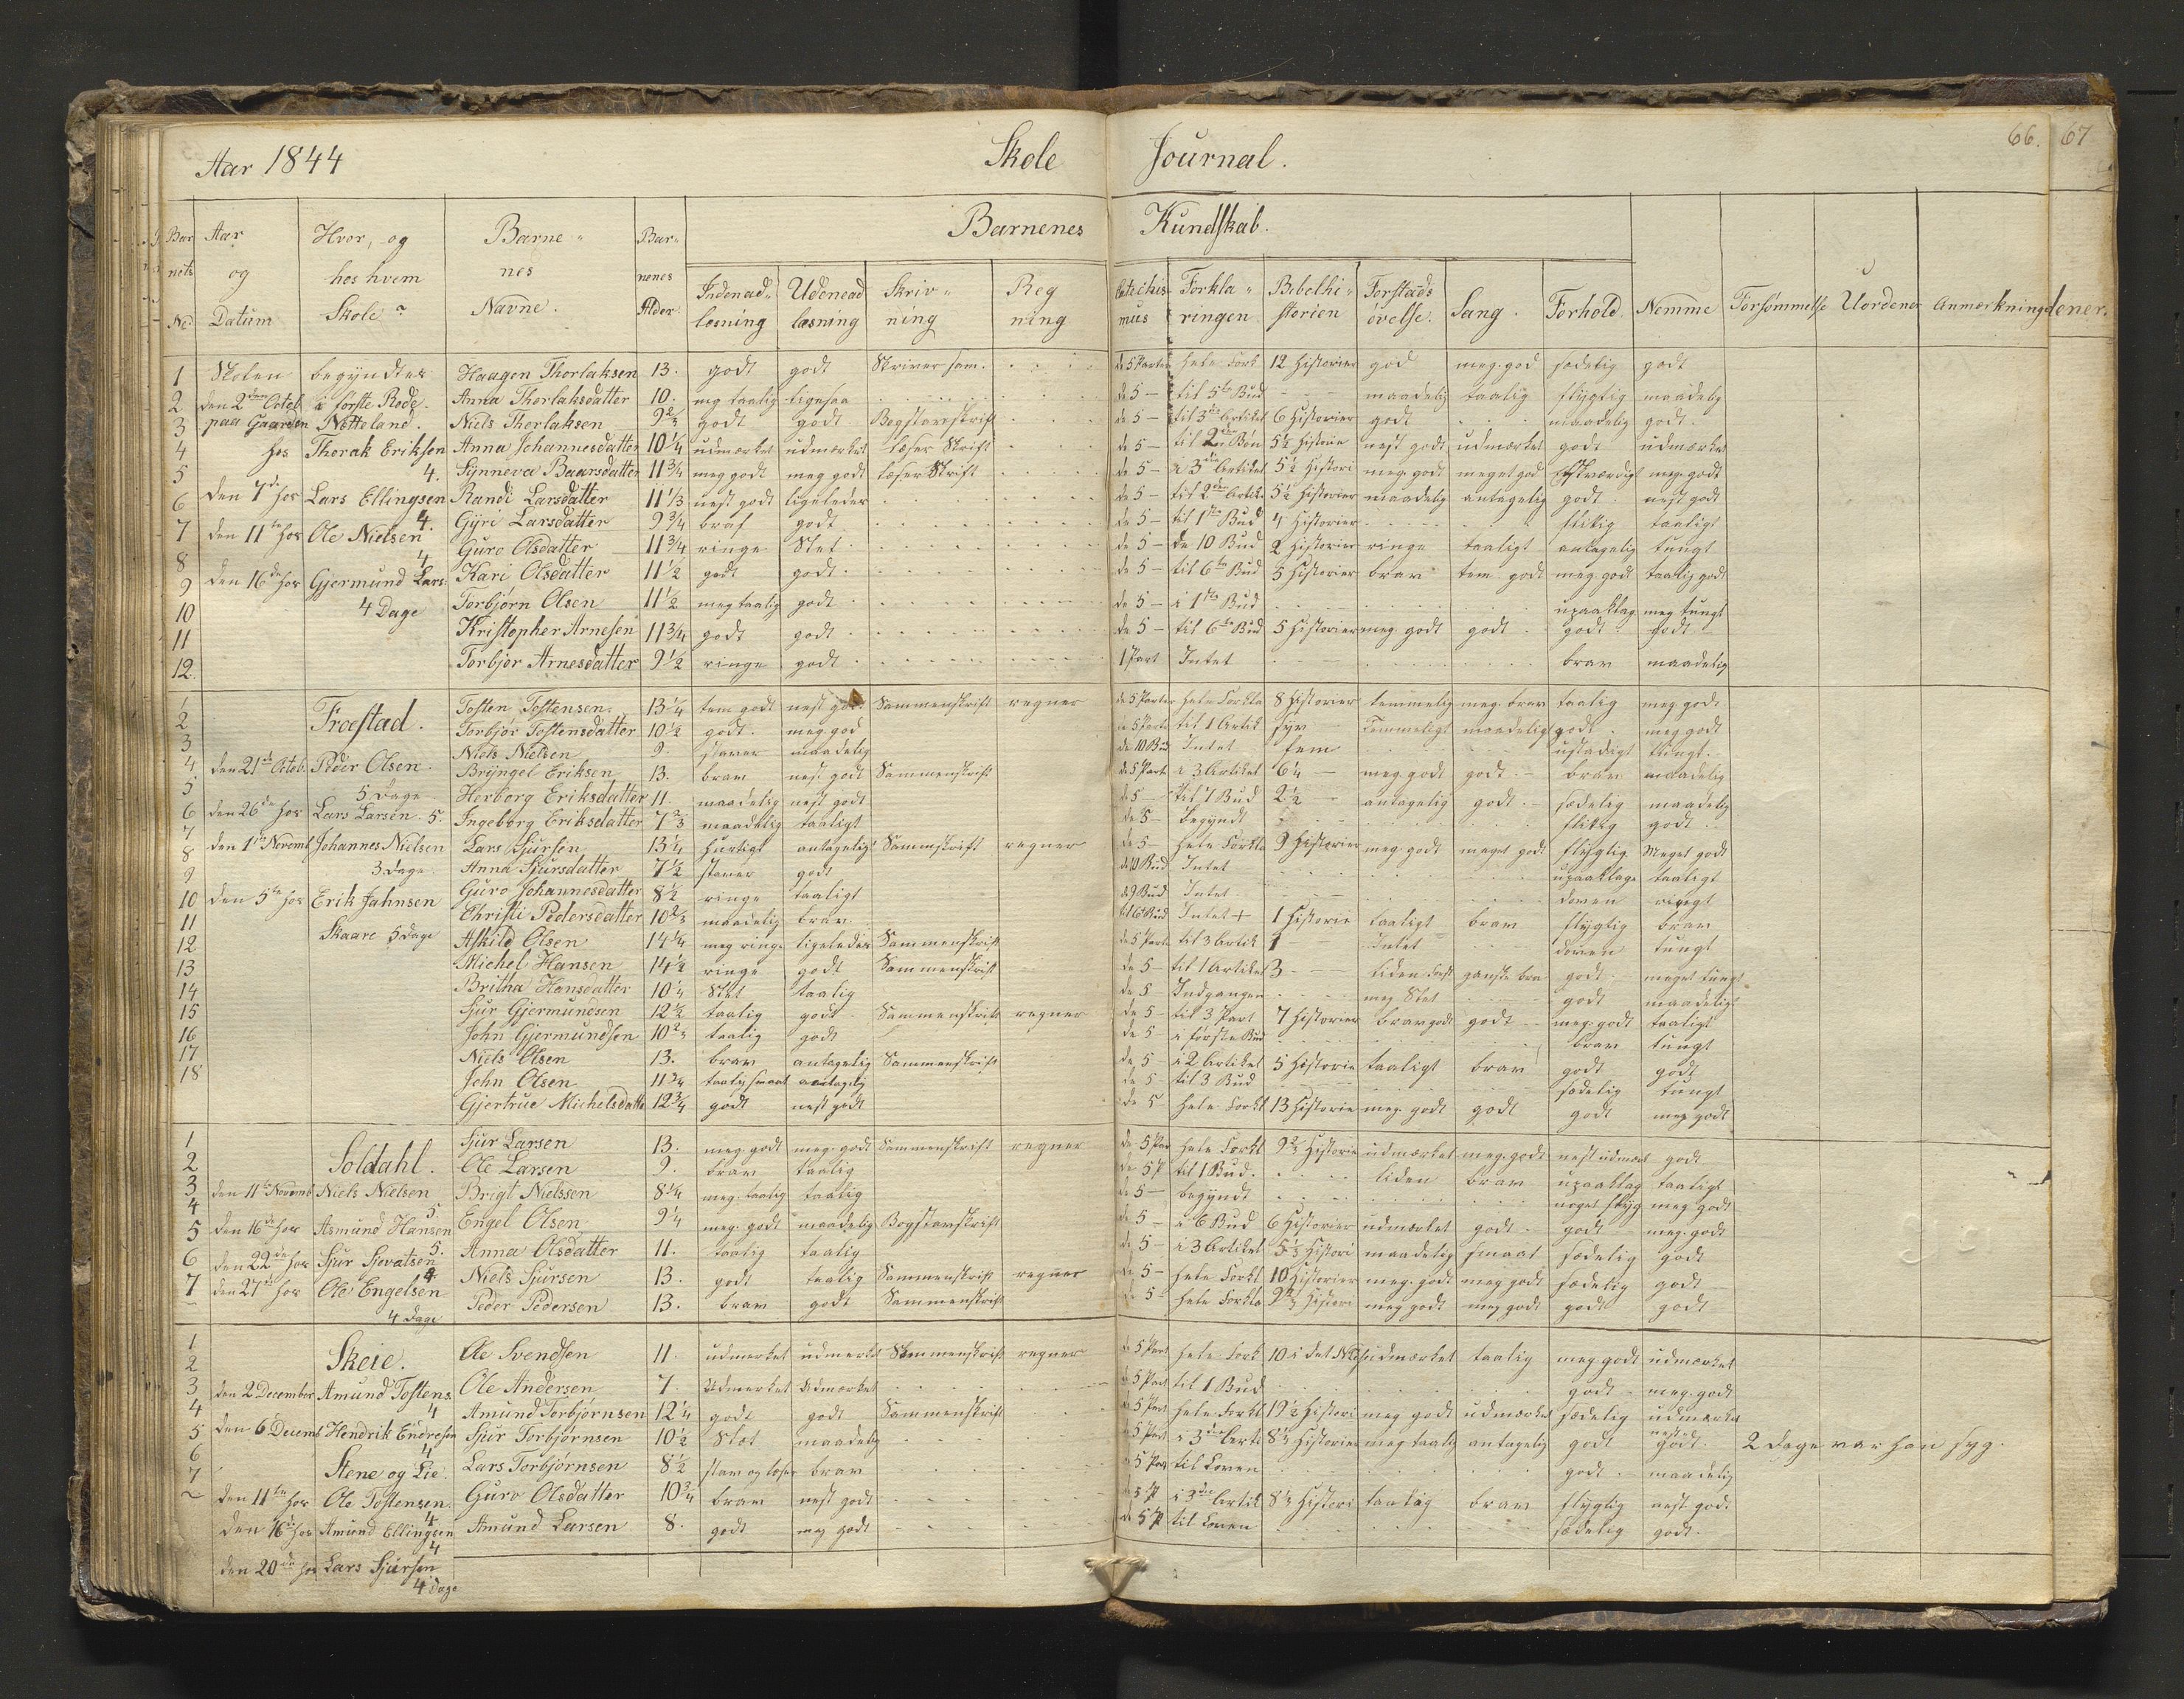 Aar 1844
Skole Journal.
66. 67
Barnets No. Aar og Datum Hvor, og hos hvem Skole? Barnenes Navne. Barnenes Alder.
Barnenes Kundskab.
Indenadlæsning Udenead læsning Skrivning Regning Catechismus Forklaringen Bibelhistorien Forstads övelse. Sang. Forhold. Nemme Forsömmelse Uordener Anmærkninger
1 Skolen begyndtes Haagen Thorlaksen 13. godt godt Skriver sam. de 5 Parter hele Fork 12 Historier god meg. god sædelig godt
2 den 2den Octob. i förste Rode. Anna Thorlaksdatter 10. meg taalig ligesaa de 5 - til 5te Bud maadelig taalig flygtig maadelig
3 paa Gaarden Netteland. Niels Thorlaksen 9 2/3 godt godt Bogstavskrift de 5 - til 3die Artikel 6 Historier godt maadelig godt.
4 hos Thorak Eriksen Anna Johannesdatter 10 1/4 udmærket udmærket læser Skrift de 5 - til 2den Bön 5 1/2 Historie nest godt udmærket godt udmærket
5 4. Synneva Baarsdatter 11 3/4 meg godt meg godt læser Skrift de 5 - i 3die Artikel 5 1/2 Histori meg. godt meget god meg. godt
6 den 7de hos Lars Ellingsen Randi Larsdatter 11 1/3 nest godt ligeledes de 5 - til 2den Artike 5 1/2 Historier maadelig antagelig godt. nest godt
7 4. Gyri Larsdatter 9 3/4 braf godt de 5 - til 1ste Bud 4 Historier flitig taaligt
den 11te hos Ole Nielsen
8 4 Guro Olsdatter 11 3/4 ringe Slet de 5 - de 10 Bud 2 Historier ringe taaligt antagelig tungt
9 den 16de hos Gjermund Lars: Kari Olsdatter 11 1/2 godt godt. de 5 - til 6te Bud 5 Historier brav tem. godt meg. godt taalig godt
10 4 Dage Torbjörn Olsen 11 1/2 meg taalig godt de 5 - i 1ste Bud upaaklag meg tungt
11 Kristopher Arnesen 11 3/4 godt godt. de 5 - til 6te Bud 5 Historier meg. godt godt. godt. godt
12. Torbjör Arnesdatter 9 1/2 ringe godt. 1 Part Intet brav maadelig
1 Træstad. Tosten Tostensen. 13 1/4 tem godt nest god. Sammenskrift regner de 5 Parter hele Forkla 8 Historier temmelig meg. brav taalig meg godt
2 Torbjör Tostensdatter 10 1/2 godt. meg. god de 5 Parte til 1 Artik syv Temmeligt maadeligt godt. meg godt
3 Niels Nielsen 9. staver maadelig de 10 Bud Intet fem ustadigt tungt.
4 den 21de Octob. Peder Olsen. Bryngel Eriksen 13. brav nest godt Sammenskrift de 5 Part i 3 Artikel 6 1/4 meg. godt godt. brav maadelig
5 5 Dage Herborg Eriksdatter 11 maadelig nest godt de 5 - til 7 Bud 2 1/2 antagelig godt. sædelig maadelig
6 den 26de hos Lars Larsen. 5. Ingeborg Eriksdatter 7 2/3 maadelig taaligt de 5 - begyndt flitig godt.
7 den 1ste Novemb Johannes Nielsen Lars Sjursen 13 1/4 hurtigt antagelig Sammskrift regner de 5 - hele Forkla 9 Historier meg. godt meget godt flygtig Meget godt
8 3 Dage. Anna Sjursdatter 7 1/2 staver godt de 10 Bud Intet upaaklage taaligt
9 Guro Johannesdatter 8 1/2 ringe taaligt de 9 Bud Intet doven
10 den 5te hos Erik Jahnsen Christi Pedersdatter 10 2/3 maadelig brav til 6 Bud Intet + 1 Historie taaligt brav flygtig brav
11 Skaare 5 Dage Askild Olsen 14 1/4 meg ringe ligeledes Sammenskrift de 5 Part til 3 Artik 1 Intet doven tungt
12 Michel Hansen 14 1/2 ringe godt Sammenskrift de 5 - til 1 Artikel 3 liden Forst ganske bra godt. meget tungt
13 Britha Hansdatter 10 1/4 Slet taalig de 5 Indgangen meg Slet godt maadeligt
14 Sjur Gjermundsen 12 1/2 taalig godt Sammenskrift regner de 5 - til 3 Part 7 Historier brav godt godt meg. godt taaligt
15 John Gjermundsen 10 2/3 taalig godt de 5 - i første Bud brav tungt
16 Niels Olsen 13. brav antagelig Sammenskrift de 5 i 2 Artikel 5 Historie taaligt brav godt godt
17 John Olsen 11 3/4 taalig smaat antagelig de 5 til 3 Bud sædelig tungt
18 Gjertrue Michelsdatte 12 3/4 godt nest godt de 5 hele Forkl 13 Historie meg. godt godt godt meg. godt
1 Sjur Larsen 13. meg. godt meg. godt Sammenskrift regner de 5 Par hele Forkl 9 2/3 Historie udmærket meg. godt nest udmært godt
2 Soldahl. Ole Larsen 9. brav taalig de 5 P til 1 Bud. liden brav upaaklag taaligt
3 den 11te Novemb Niels Nielsen Brigt Nielssen 8 1/4 meg. taalig taalig de 5 - begyndt noget flyg meg. godt
4 5. Engel Olsen 9 1/4 meg. godt maadelig Bogstavskrift de 5 - i 6 Bud 6 Historier udmærket godt godt meg. godt
5 den 16de hos Asmund Hansen 5. Anna Olsdatter 11. taalig taalig de 5 - i 3 Artikel 5 1/2 Histori maadelig smaat sædelig godt
6 den 22de hos Sjur Sjovatsen 4 Niels Sjursen 13. godt taalig Sammenskrift regner de 5 - hele Forkl 10 Historier meg. godt meg godt sædelig godt
7 den 27de hos Ole Engelsen 4 Dage Peder Pedersen 13. brav godt Sammenskrift de 5 - hele Forkla 9 2/3 Histori meg godt meg godt godt godt
1 Skeie. Ole Svendsen 11. udmerket udmerket Sammenskrift regner de 5 Part hele Fork 10 i det udmærket taalig meg. godt udmærket
2 Ole Andersen 7. Udmerket Udmærket de 5 Part til 1 Bud godt meg. godt
3 den 2 December Amund Tostens
4 4 Amund Torbjörnsen 12 1/4 godt godt Sammenskrift de 5 Part hele Forkl 19 1/2 Histori meg godt udmærket sædelig udmærket
5 den 6 Decemb Hendrik Endresen Sjur Torbjörnsen 10 1/2 Slet maadelig de 5 Part i 3die Arti 8 1/2 Historier meg taalig antagelig godt nest godt. 2 Dage var han syg.
6 4 Stene og Lie. Lars Torbjörnsen 8 1/2 stav og læser brav de 5 Par til Loven godt. maadelig
7 den 11te hos Ole Tostensen. Guro Olsdatter 10 3/4 brav nest godt de 5 P i 3die Artik 8 1/2 Histori taalig brav flygtig nest godt
4 den 16de hos Amund Ellingsen Amund Larsen 8. godt meg godt de 5 P til Loven sædelig godt.
4
den 20de hos Lars Sjursen
4 Dage